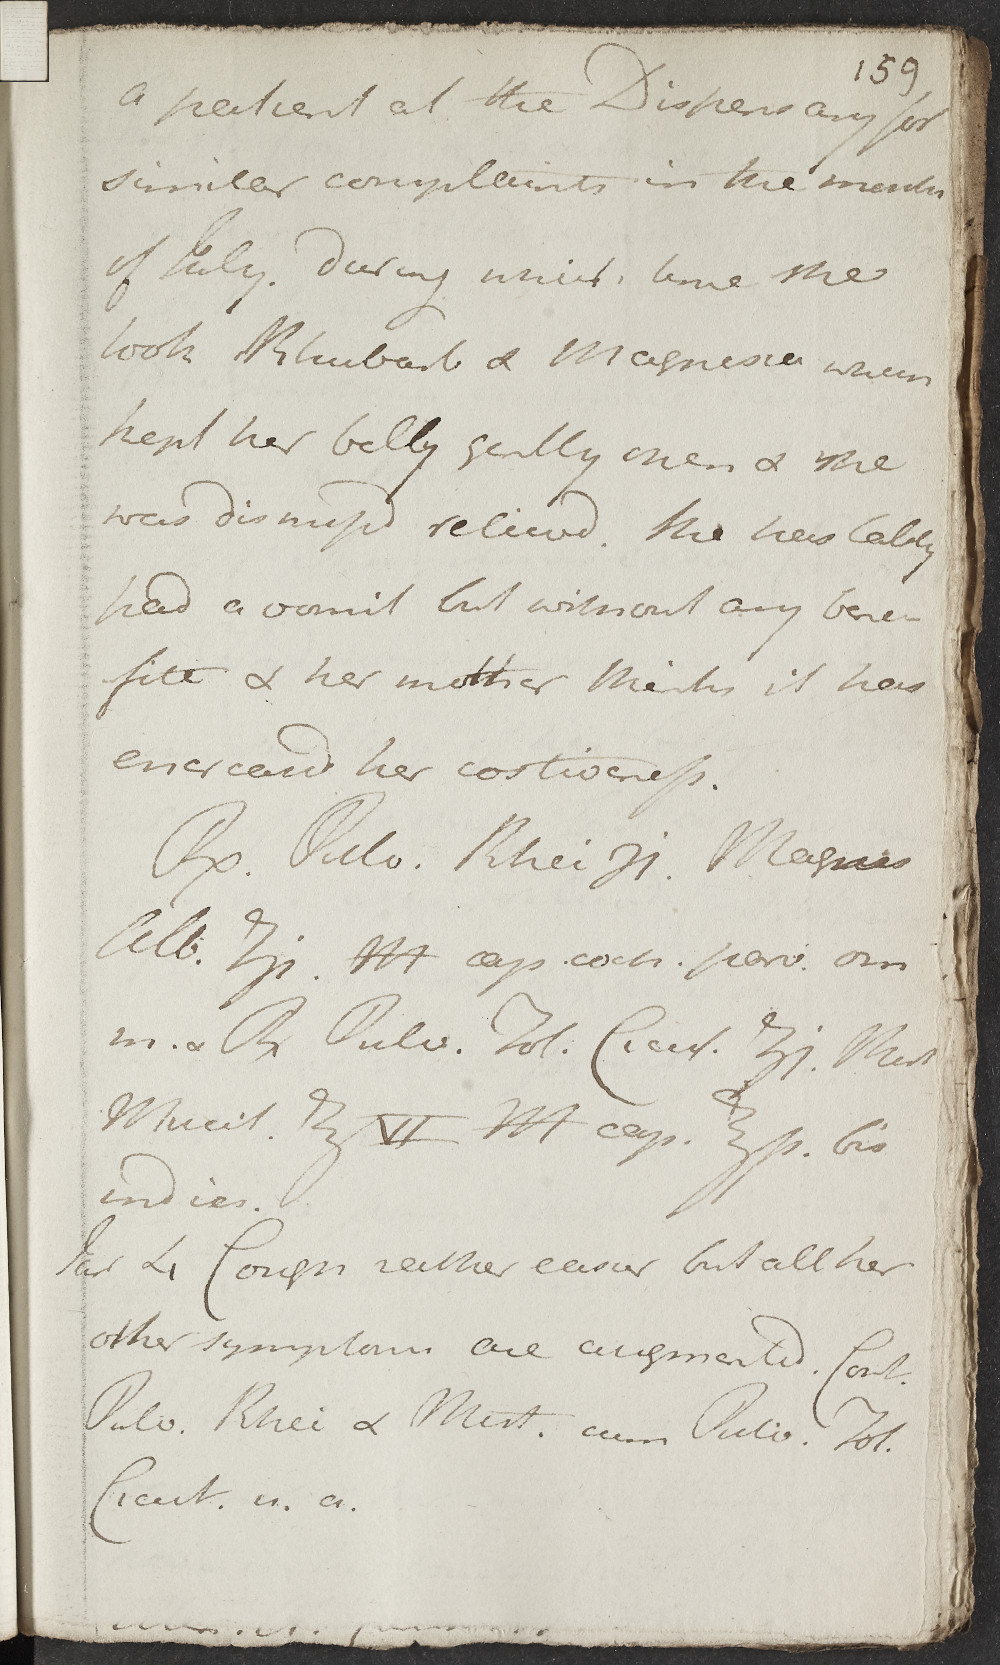 159
a patient at the Dispensary for
similar complaints in the month
of July. During which time she
took Rhubarb & Magnesia which
kept her belly gently open & she
was dismissd relieved. She has lately
had a vomit but without any bene-
fite & her mother thinks it has
encreasd her costiveness.
Rx. Pulv. Rhei ʒj. Magnes
Alb. ʒij. M cap. coch. parv. om
m. & Rx Pulv. Fol. Cicut. ʒj. Mist
Mucil. ℥VI M cap. ℥ss. bis
indies.
Jar 4 Cough rather easier but all her
other symptoms are augmented. Cont.
Pulv. Rhei & Mist. cum Pulv. Fol.
Cicut. u. a.